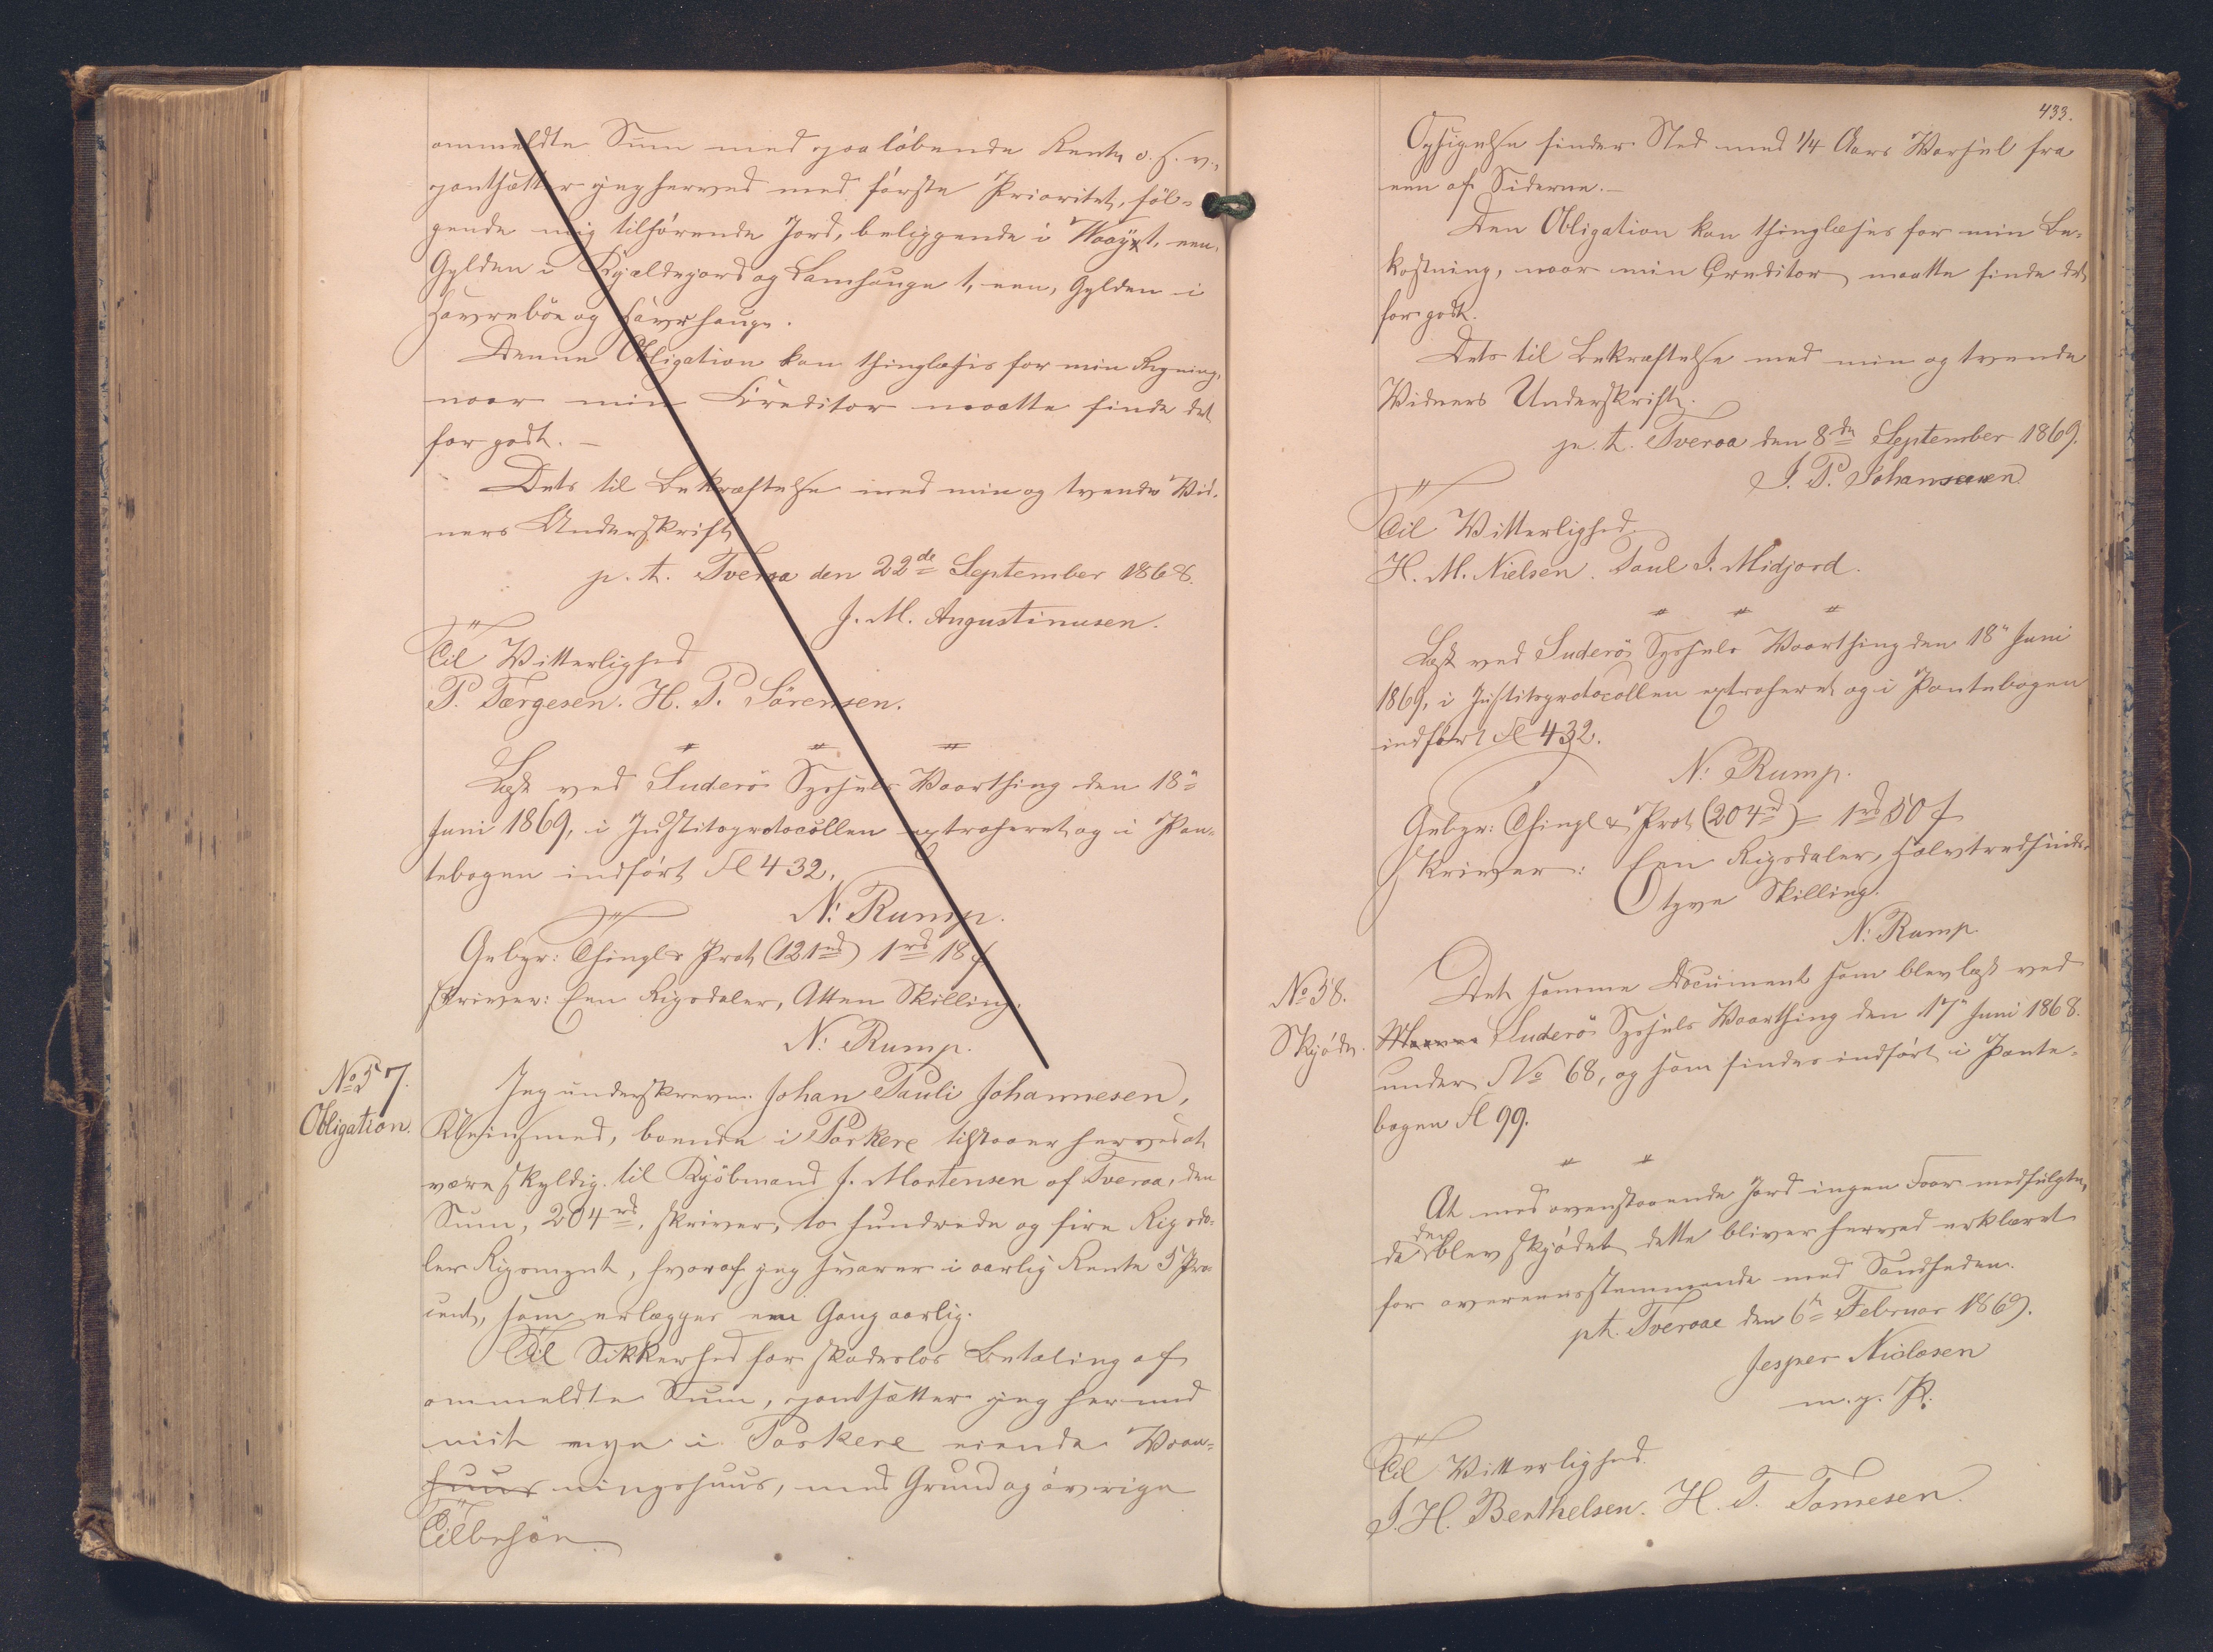 ommeldte Sum med paaløbende Rente o. s. v.,
pantsætter jeg herved med første Prioritet, føl-
gende mig tilhørende Jord, beliggende i Waag 1, een,
Gylden i Kjældegard og Lamhauge 1, een, Gylden i
Havrebøe og Havrhauge.
Denne Obligation kan thinglæses for min Regning,
naar min Creditor maatte finde det
for godt. —
Dets til Bekræftelse med min og tvende Vid-
ners Underskrift
p. t. Tveraa den 22de September 1868.
J. M. Augustinusen.
Til Vitterlighed
P. Tærgesen. H. P. Sörensen.
Læst ved Suderö Syssels Vaarthing den 18"
Juni 1869, i Justitsprotocollen extraheret og i Pan-
tebogen indført Fl 432.
N: Rump.
Gebyr: Thingl & Prot (121rd) 1rd 18 ß
skriver: Een Rigsdaler, Atten Skilling.
N: Rump.
No 57.
Obligation.
Jeg underskrevne Johan Pauli Johannesen,
Kleinsmed, boende i Porkere tilstaaer herved at
være skyldig til Kjøbmand J. Mortensen af Tveraa, den
Sum, 204rd, skriver, to hundrede og fire Rigsda-
ler Rigsmynt, hvoraf jeg svarer i aarlig Rente 5 Pro-
cent, som erlægges een Gang aarlig.
Til Sikkerhed for skadeslos Betaling af
ommeldte Sum, pantsætter jeg hermed
mit eget i Porkere eiende Vaan-
huus ningshuus, med Grund og øvrige
Tilbehør.
433.
Opsigelse finder Sted med 1/4 Aars Varsel fra
een af Siderne. —
Den Obligation kan thinglæses for min Be-
kostning, naar min Creditor maatte finde det
for godt.
Dets til Bekræftelse med min og tvende
Vidners Underskrift.
p. t. Tveraa den 8de September 1869.
J. P. Johannesen
Til Vitterlighed
H. M. Nielsen. Poul J. Midjord.
Læst ved Suderö Syssels Vaarthing den 18" Juni
1869, i Justitsprotocollen extraheret og i Pantebogen
indført Fl 432.
N: Rump.
Gebyr: Thingl & Prot (204rd) = 1rd 50 ß
skriver: Een Rigsdaler, halvtredsinds-
tyve Skilling.
N: Rump
No 58.
Skjøde.
Det samme Document som blev læst ved
Suderö Syssels Vaarthing den 17" Juni 1868.
under No 68, og som findes indført i Pante-
bogen Fl 99.
At med ovenstaaende Jord ingen Faar medfulgte,
da den blev skjødet dette bliver herved erklæret
for overeensstemmende med Sandheden.
pt. Tveraae den 6te Februar 1869.
Jesper Niclasen
m. p. P.
Til Vitterlighed
J. H. Berthelsen. H. T. Tomesen.